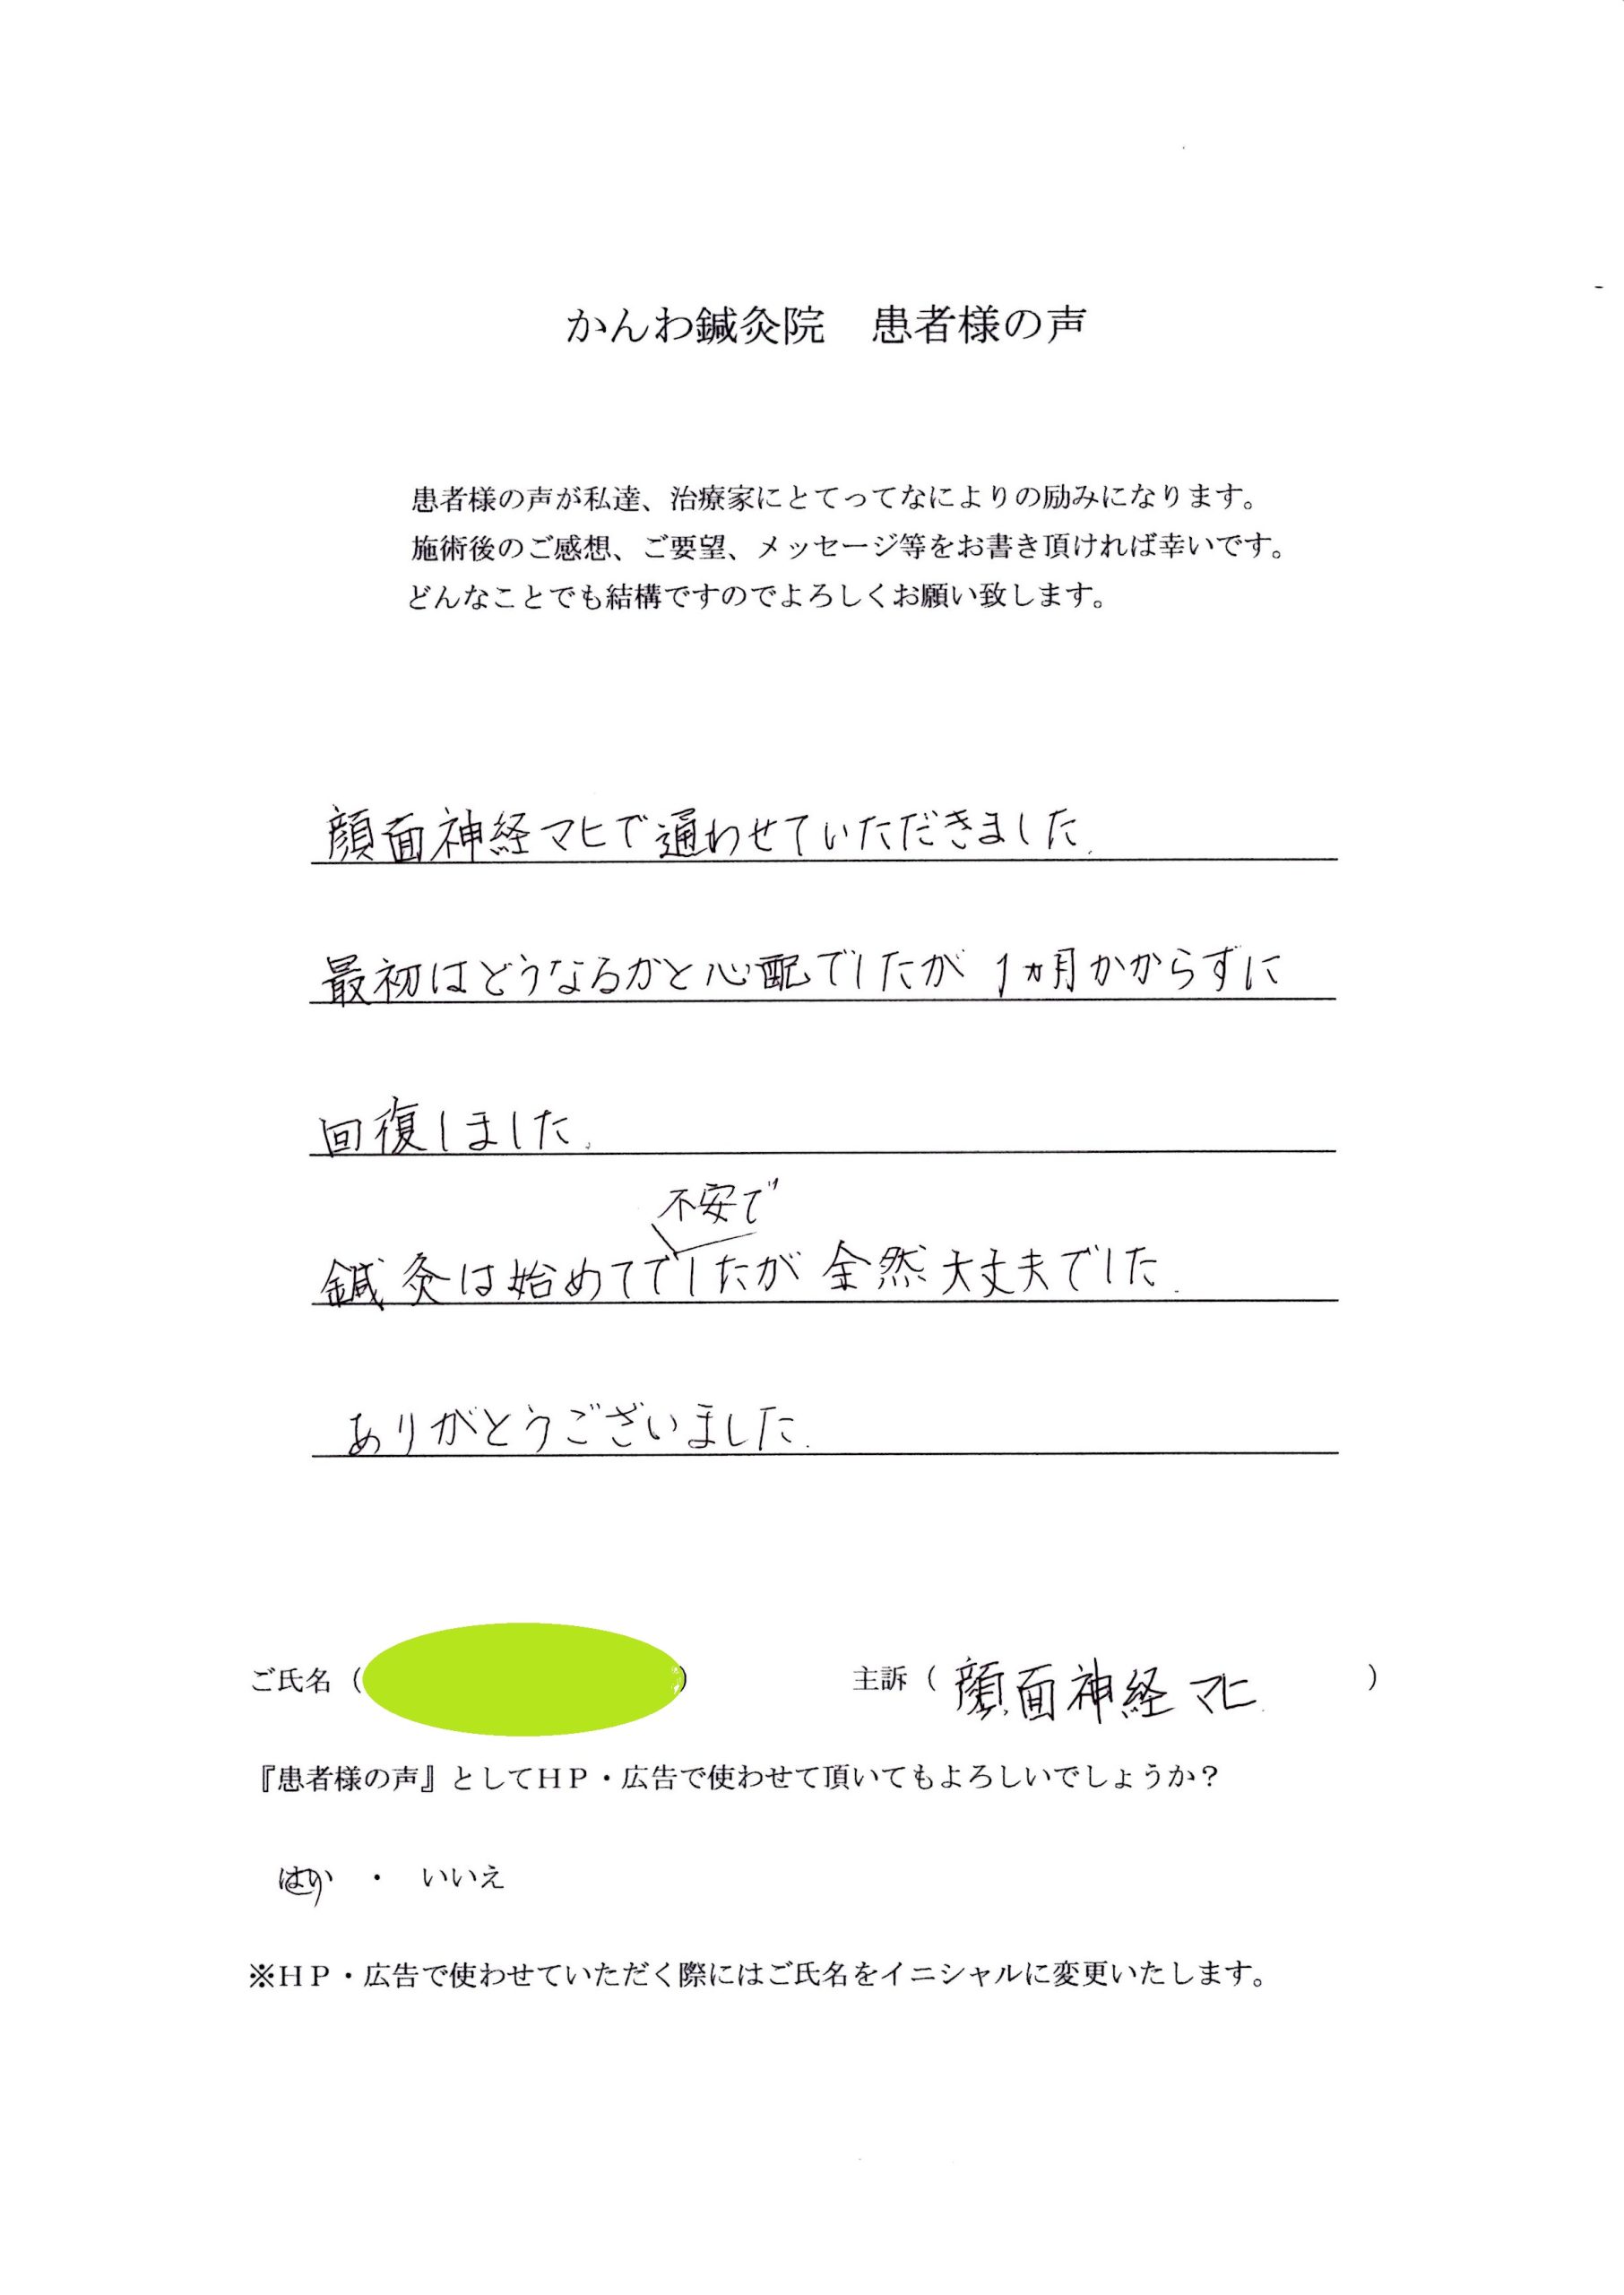 かんわ鍼灸院　患者様の声
患者様の声が私達、治療家にとてってなによりの励みになります。
施術後のご感想、ご要望、メッセージ等をお書き頂ければ幸いです。
どんなことでも結構ですのでよろしくお願い致します。
顔面神経マヒで通わせていただきました.
最初はどうなるかと心配でしたが 1ヵ月かからずに
回復しました.
不安で
鍼灸は始めてでしたが 全然大丈夫でした.
ありがとうございました.
ご氏名（　　　）　主訴（顔面神経マヒ　）
『患者様の声』としてＨＰ・広告で使わせて頂いてもよろしいでしょうか？
はい　・　いいえ
※ＨＰ・広告で使わせていただく際にはご氏名をイニシャルに変更いたします。